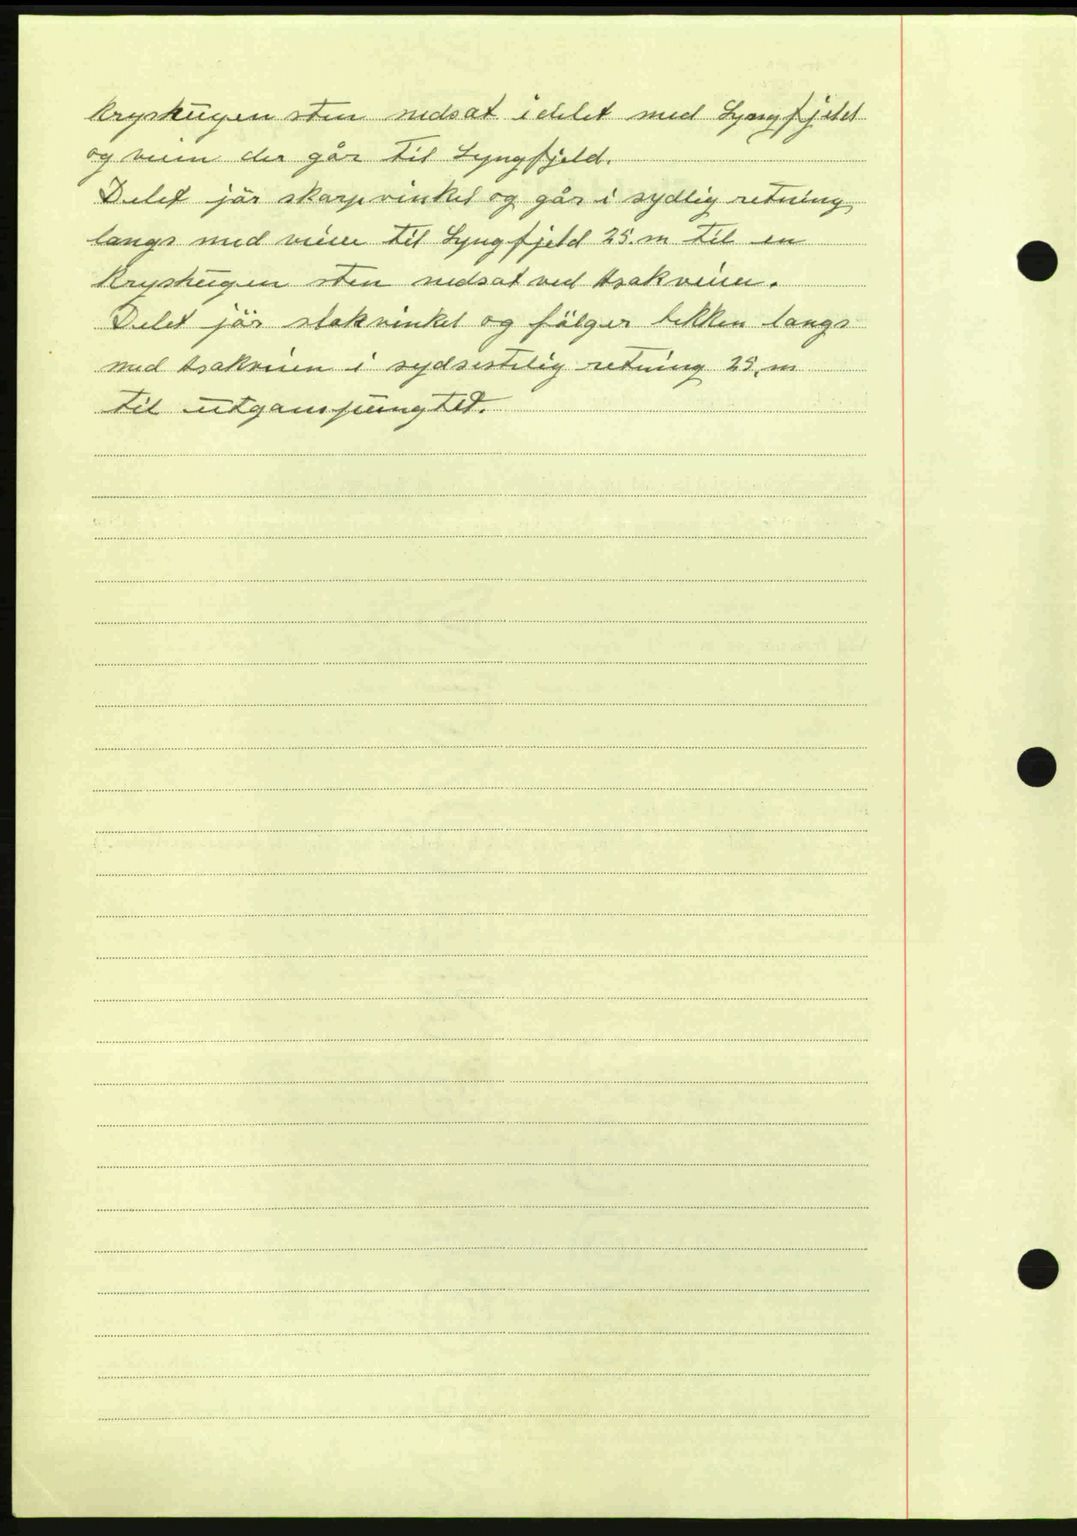 kryshügen sten nedsat i delet med Lyngfjeld
og veien der går til Lyngfjeld.
Delet jör skarpvinkel og går i sydlig retning
langs med veien til Lyngfjeld 25. m til en
kryshügen sten nedsat ved veien.
Delet jör slakvinkel og fölger bekken langs
med i sydvestelig retning 25. m
til ütganspüngtet.